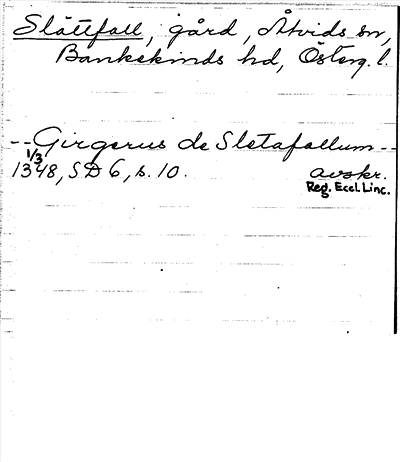 Slättfall, gård, Åtvids sn,
Bankekinds hd, Österg. l.
--Girgerus de Sletafallum--
1/3
1348, SD 6, s. 10. avskr.
Reg. Eccl. Linc.